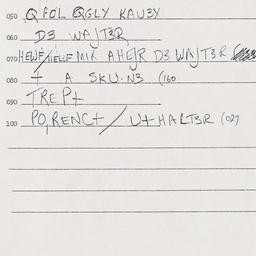 050 Q FOL QGLY KAU3Y
D3 WAJT3R
070 HEWF/HEWF MIR AHEJR D3 WAJT3R
080 + A SKU·N3 (160
090 TREP+
100 PO,RENC+/U+HALT3R (027